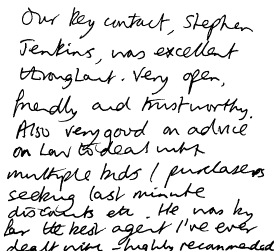 Our key contact, Stephen
Jenkins, was excellent
throughout. Very open,
friendly and trustworthy.
Also very good on advice
on how to deal with
multiple bids / purchasers
seeking last minute
discounts etc. He was by
far the best agent I've ever
dealt with. highly recommended